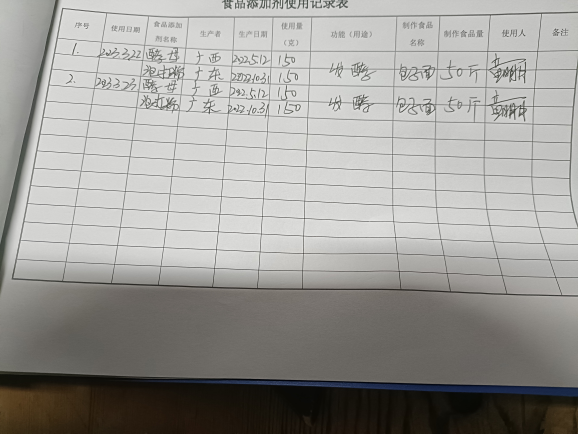 食品添加剂使用记录表
序号 使用日期 食品添加剂名称 生产者 生产日期 使用量（克） 功能（用途） 制作食品名称 制作食品量 使用人 备注
1. 2023.3.22 酵母 广西 2022.5.12 150 发酵 包子面 50斤
泡打粉 广东 2022.10.31 150
2. 2023.3.23 酵母 广西 2022.5.12 150 发酵 包子面 50斤
泡打粉 广东 2022.10.31 150